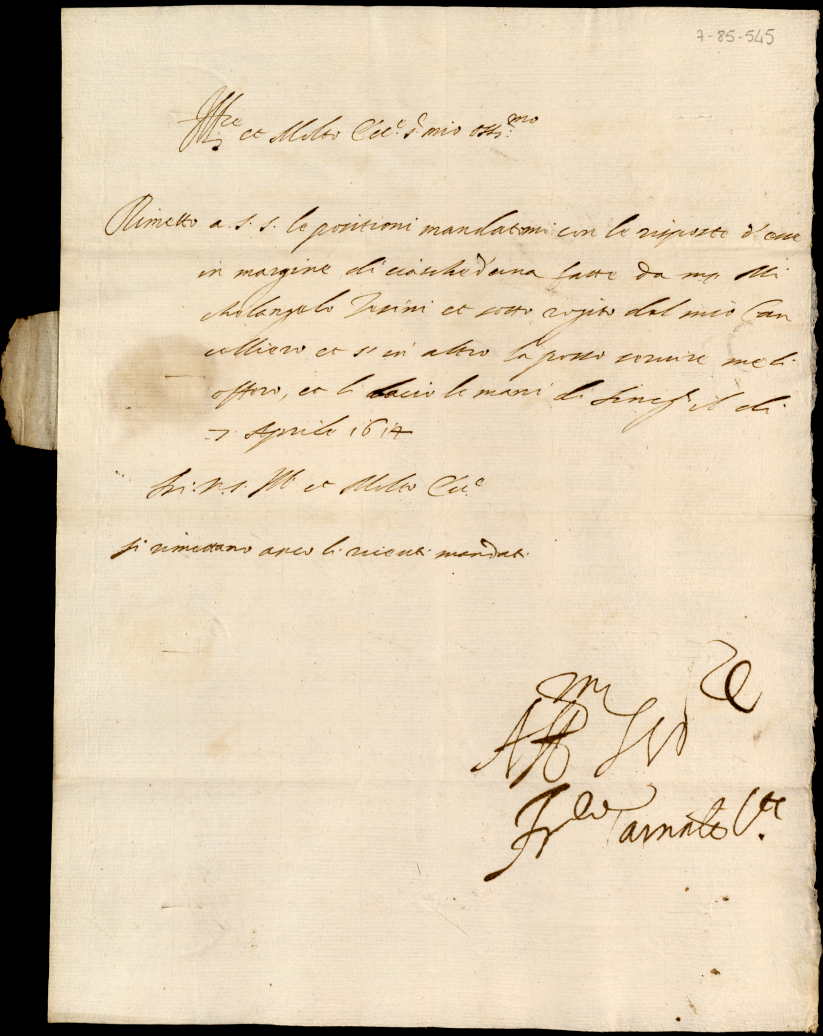 7-85-545
Ill.re et Molto Ecc.e S.r mio oss.mo
Rimetto a. S. S. le positioni mandatemi con le risposte d'esse
in margine di ciascheduna fatte da m.r Mi
chelangelo et sotto rogito del mio Can
celliero et s'in altro la posso servire me li
offero, et li bacio le mani di il di
7 Aprile 1614
Di. V. S. Ill. et Molto Ecc.e
Si rimettano anco li mandati
Aff.mo Ser.re
V.